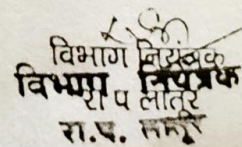 विभाग नियंत्रक
विभाग नियंत्रक
रा प लातूर
रा.प. लातूर